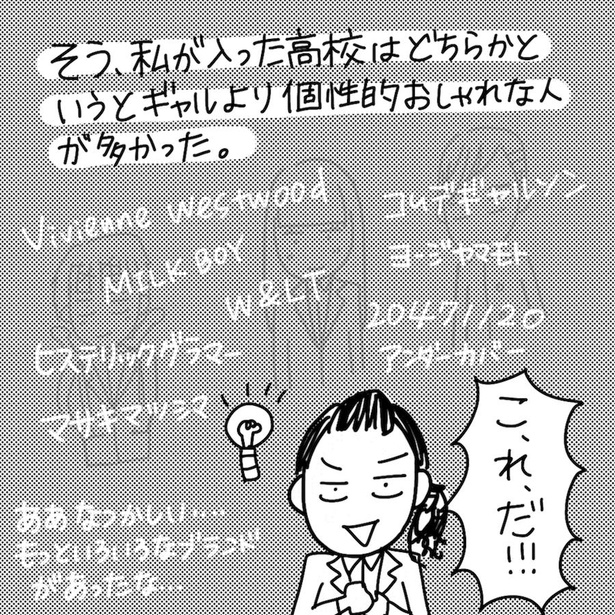 そう、私が入った高校はどちらかと
いうとギャルより個性的おしゃれな人
が多かった。
Vivienne Westwood
コムデギャルソン
MILK BOY
ヨージヤマモト
W&LT
20471120
ヒステリックグラマー
アンダーカバー
マサキマツシマ
こ、れ、だ!!!
ああなつかしい…
もっといろいろなブランド
があったな…